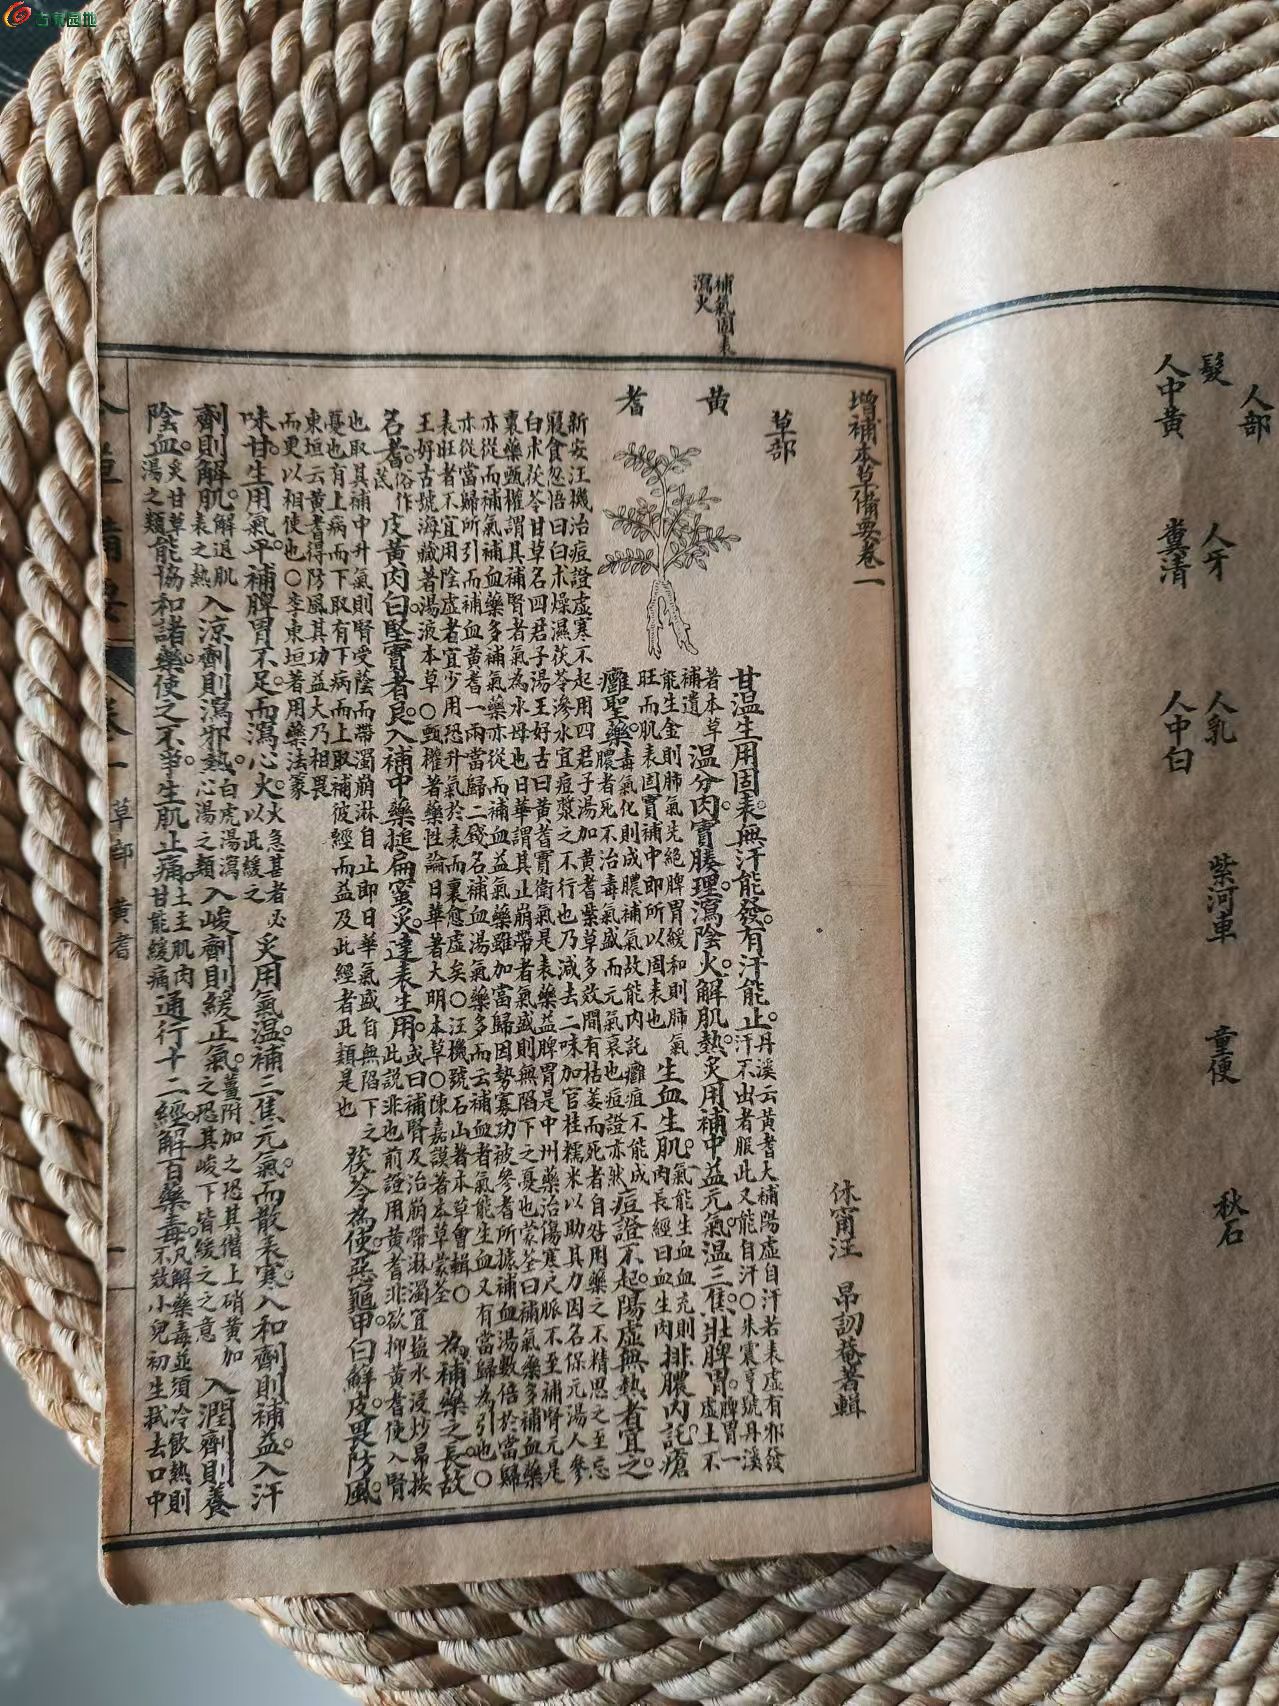 人部
髮 人牙 人乳 紫河車 童便 秋石
人中黃 糞清 人中白
補氣固表
瀉火
增補本草備要卷一
休甯汪 昂訒菴著輯
草部
黃耆
甘温生用固表無汗能發有汗能止。丹溪云黃耆大補陽虛自汗若表虛有邪發汗不出者服此又能自汗○朱震亨號丹溪
著本草補遺温分肉實腠理瀉陰火解肌熱炙用補中益元氣温三焦壯脾胃。脾胃一虛土不
能生金則肺氣先絕脾胃緩和則肺氣旺而肌表固實補中即所以固表也生血生肌。氣能生血血充則肉長經曰血生肉排膿內託瘡
癰聖藥。毒氣化則成膿補氣故能內託癰疽不能成膿者死不治毒氣盛而元氣衰也痘證亦然痘證不起陽虛無熱者宜之。
新安汪機治痘證虛寒不起用四君子湯加黃耆紫草多效間有枯萎而死者自咎用藥之不精思之至忘
寢食忽悟曰白术燥濕茯苓滲水宜痘漿之不行也乃減去二味加官桂糯米以助其力因名保元湯人參
白术茯苓甘草名四君子湯王好古曰黃耆實衛氣是表藥益脾胃是中州藥治傷寒尺脈不至補腎元是
裏藥甄權謂其補腎者氣為水母也日華謂其止崩帶者氣盛則無陷下之憂也蒙筌曰補氣藥多補血藥
亦從而補氣補血藥多補氣藥亦從而補血益氣藥雖加當歸因勢寡功被參耆所據補血湯數倍於當歸
亦從當歸所引而補血黃耆一兩當歸二錢名補血湯氣藥多而云補血者氣能生血又有當歸為引也○
表旺者不宜用陰虛者宜少用恐升氣於表而裏愈虛矣○汪機號石山著本草會輯○
王好古號海藏著湯液本草○甄權著藥性論日華著大明本草○陳嘉謨著本草蒙筌為補藥之長故
名耆。俗作芪皮黃肉白堅實者良入補中藥搥扁蜜炙達表生用。或曰補腎及治崩帶淋濁宜鹽水浸炒昂按此說非也前證用黃耆非欲抑黃耆使入腎
也取其補中升氣則腎受蔭而帶濁崩淋自止即日華氣盛自無陷下之憂也有上病而下取有下病而上取補彼經而益及此經者此類是也茯苓為使惡龜甲白鮮皮畏防風。
東垣云黃耆得防風其功益大乃相畏
而更以相使也○李東垣著用藥法象
味甘。生用氣平補脾胃不足而瀉心火。火急甚者必以此緩之炙用氣温補三焦元氣而散表寒。入和劑則補益入汗
劑則解肌。解退肌表之熱入涼劑則瀉邪熱。白虎湯瀉心湯之類入峻劑則緩正氣。薑附加之恐其僭上硝黃加之恐其峻下皆緩之之意入潤劑則養
陰血。炙甘草湯之類能協和諸藥使之不爭生肌止痛。土主肌肉甘能緩痛通行十二經解百藥毒。凡解藥毒並須冷飲熱則不效小兒初生拭去口中
本草備要 卷一 草部 黃耆 一